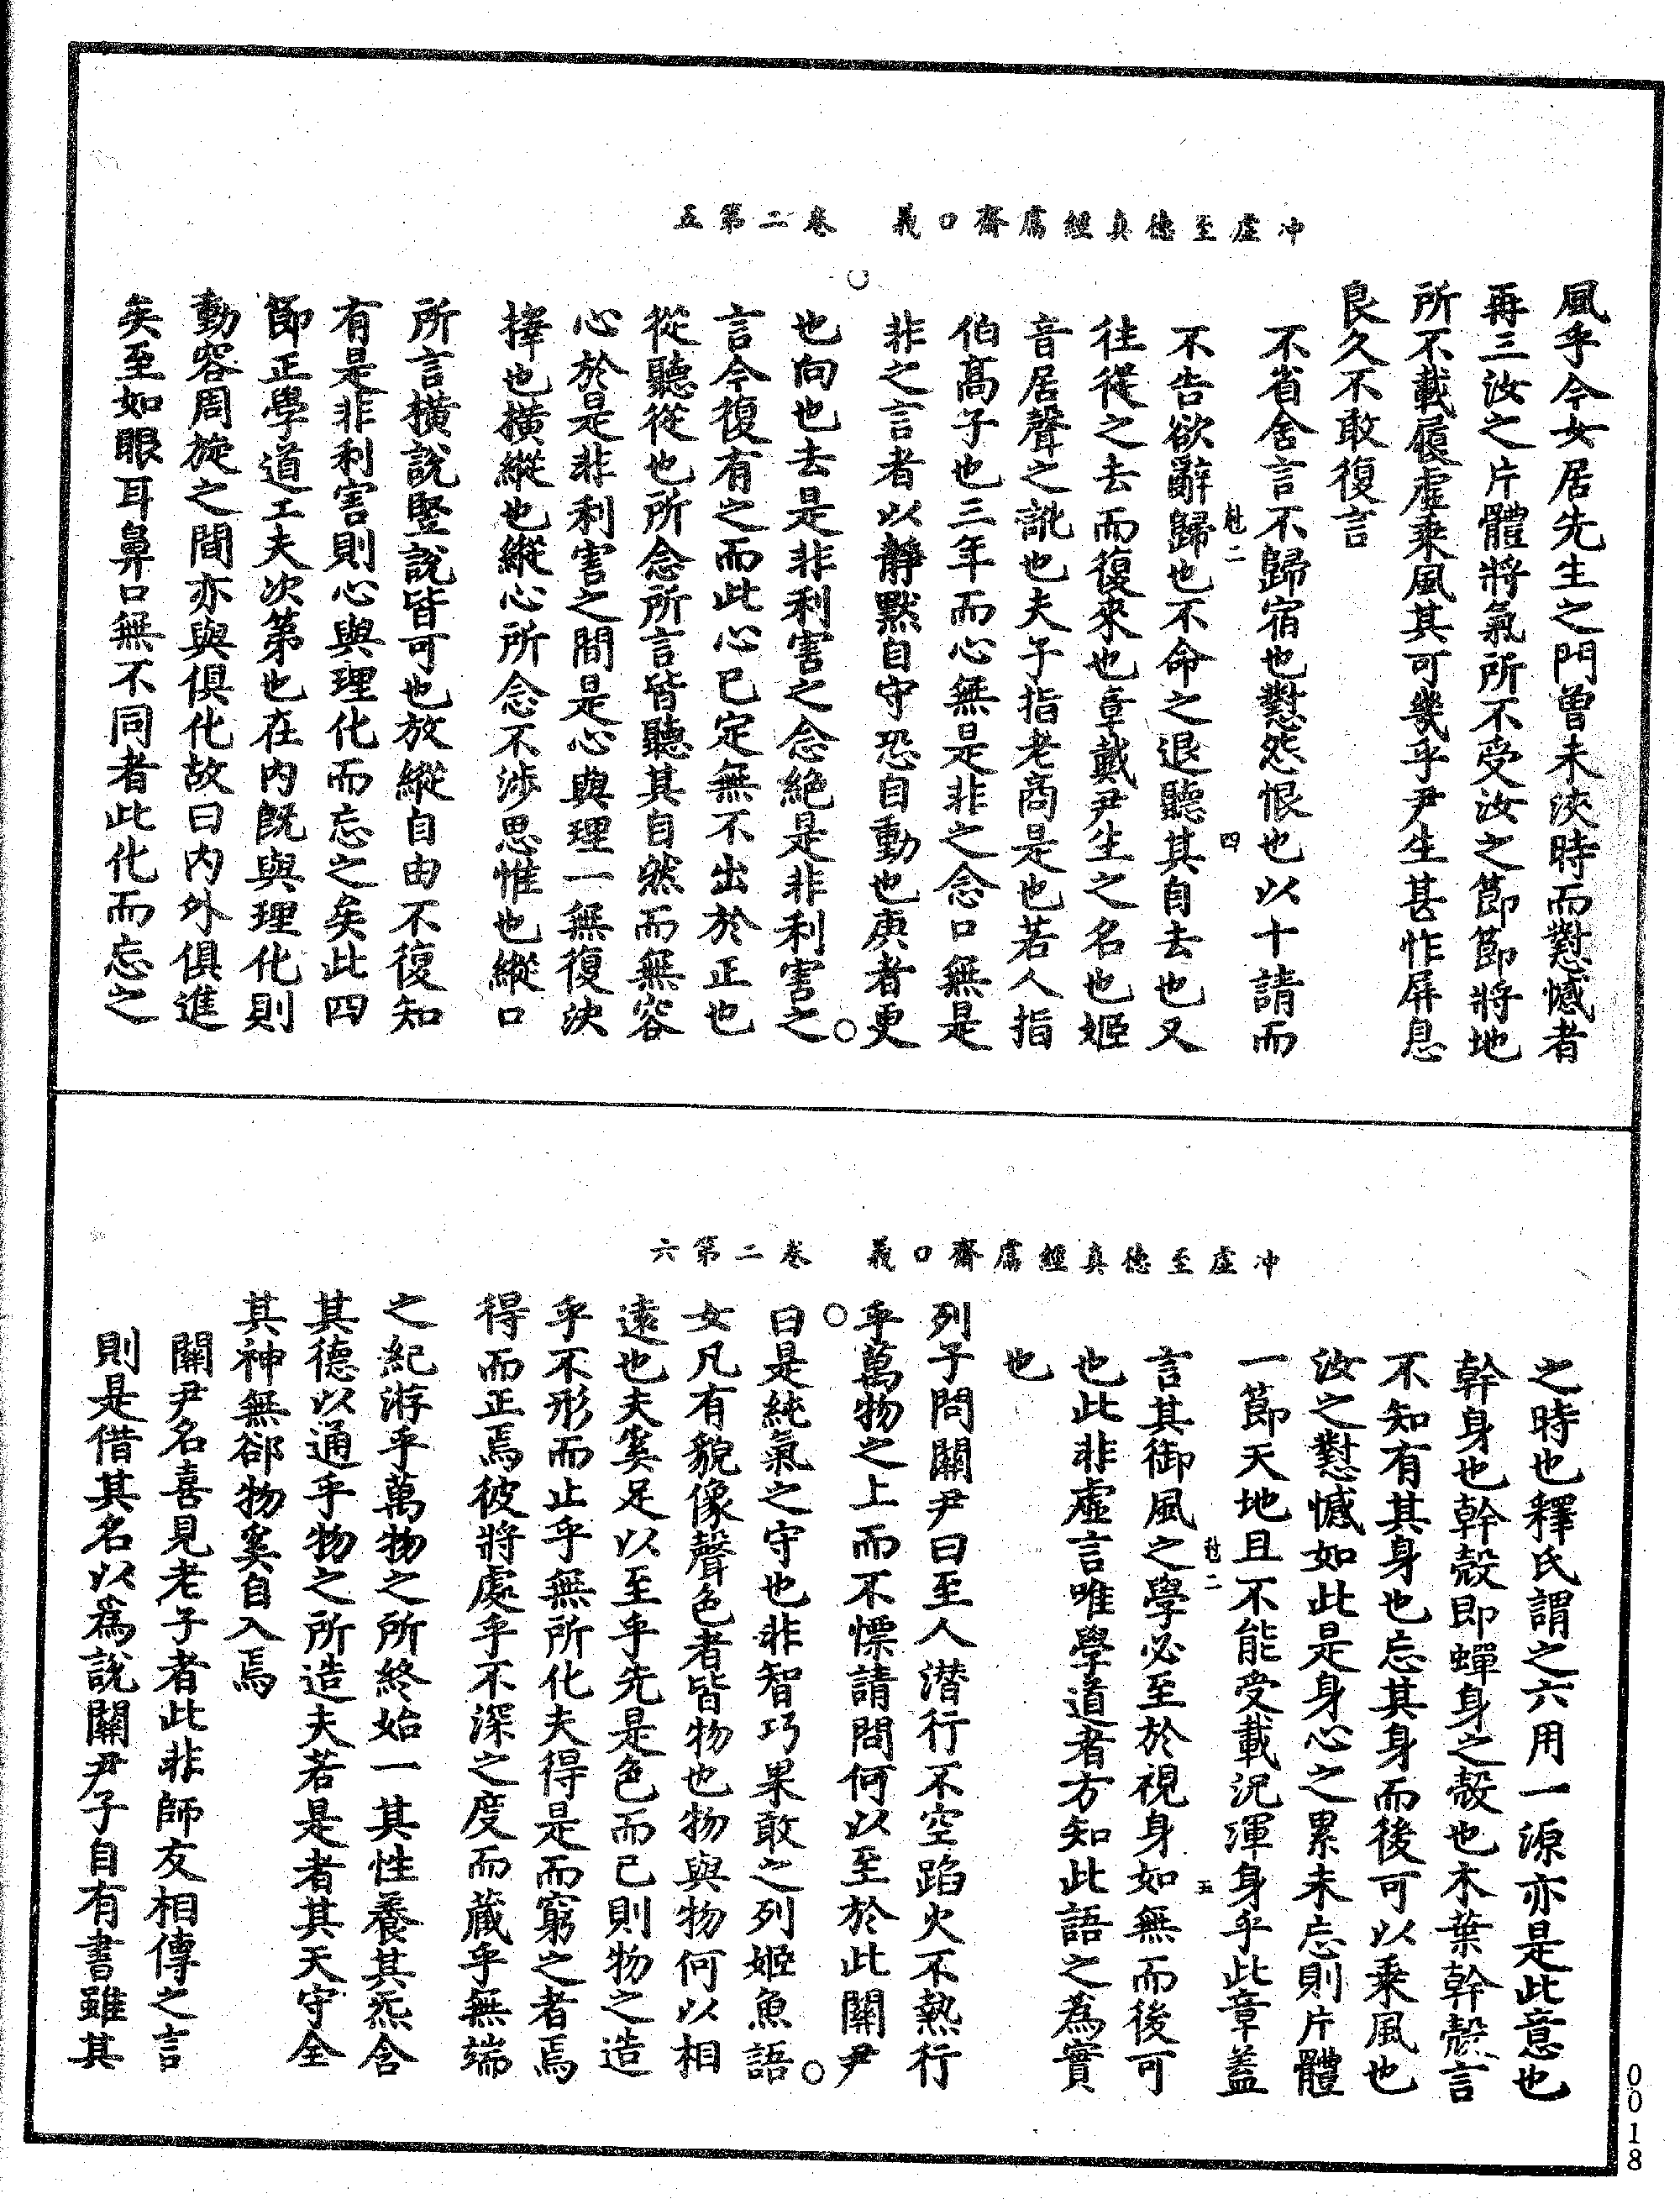 冲虛至德真經鬳齋口義　卷二第五
風乎今女居先生之門曾未浹時而懟憾者
再三汝之片體將氣所不受汝之節節將地
所不載履虛乘風其可幾乎尹生甚怍屏息
良久不敢復言
不省舍言不歸宿也懟怨恨也以十請而
不告欲辭歸也不命之退聽其自去也又
往從之去而復來也章戴尹生之名也姬
音居聲之訛也夫子指老商是也若人指
伯高子也三年而心無是非之念口無是
非之言者以靜默自守恐自動也庚者更
也向也去是非利害之念絕是非利害之
言今復有之而此心已定無不出於正也
從聽從也所念所言皆聽其自然而無容
心於是非利害之間是心與理一無復決
擇也橫縱也縱心所念不涉思惟也縱口
所言橫說豎說皆可也放縱自由不復知
有是非利害則心與理化而忘之矣此四
節正學道工夫次第也在內既與理化則
動容周旋之間亦與俱化故曰內外俱進
矣至如眼耳鼻口無不同者此化而忘之
二
四
冲虛至德真經鬳齋口義　卷二第六
之時也釋氏謂之六用一源亦是此意也
幹身也幹殼即蟬身之殼也木葉幹殼言
不知有其身也忘其身而後可以乘風也
汝之懟憾如此是身心之累未忘則片體
一節天地且不能受載況渾身乎此章蓋
言其御風之學必至於視身如無而後可
也此非虛言唯學道者方知此語之為實
也
列子問關尹曰至人潛行不空蹈火不熱行
乎萬物之上而不慄請問何以至於此關尹
曰是純氣之守也非智巧果敢之列姬魚語
女凡有貌像聲色者皆物也物與物何以相
遠也夫奚足以至乎先是色而已則物之造
乎不形而止乎無所化夫得是而窮之者焉
得而正焉彼將處乎不深之度而藏乎無端
之紀游乎萬物之所終始一其性養其炁含
其德以通乎物之所造夫若是者其天守全
其神無郤物奚自入焉
關尹名喜見老子者此非師友相傳之言
則是借其名以為說關尹子自有書雖其
二
五
0018